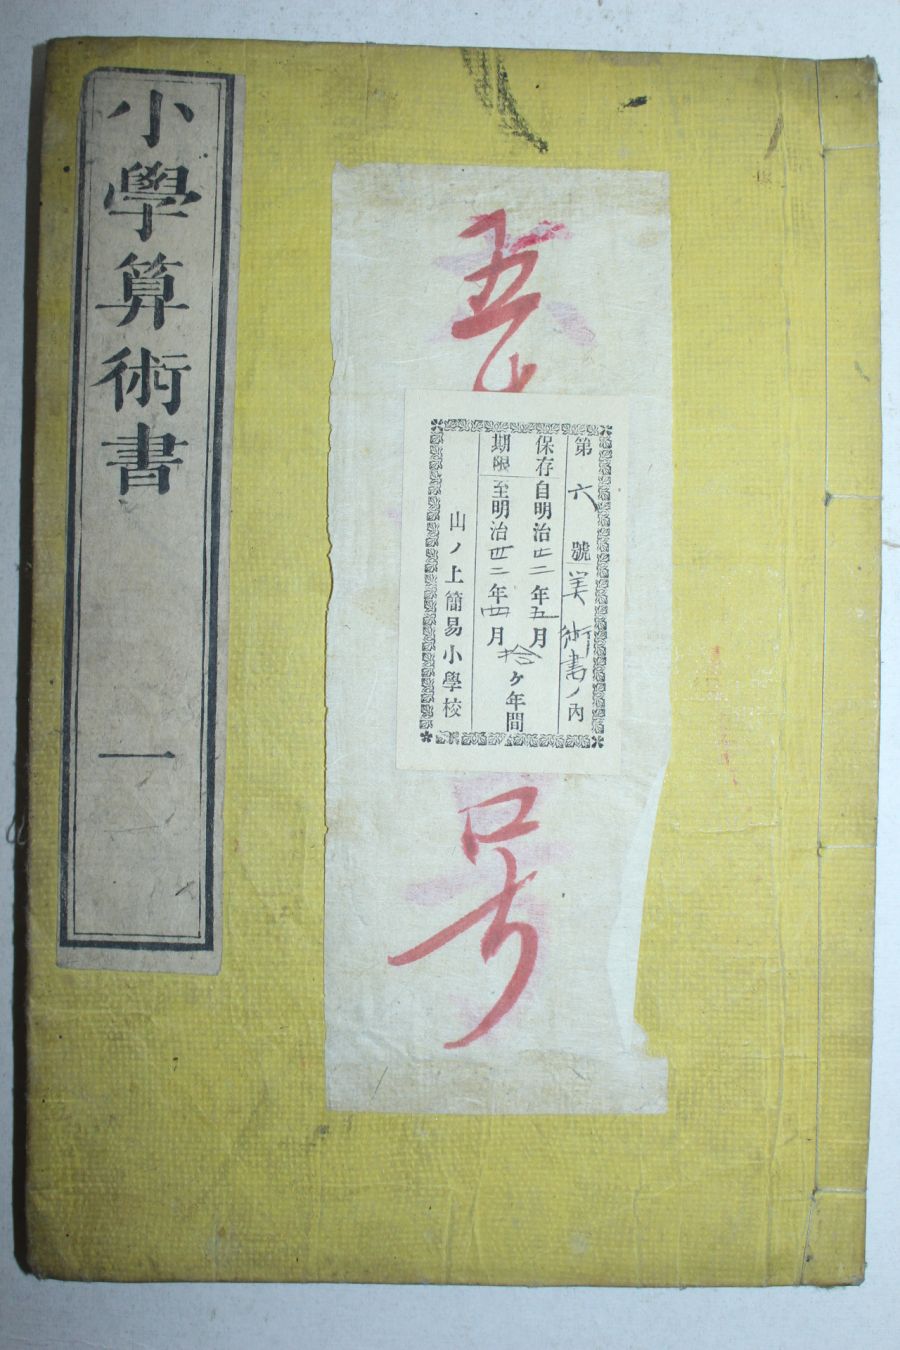 小學算術書 一
五
号
第六號美術書ノ內
保存自明治卅二年五月
期限至明治四二年四月
拾ケ年間
山ノ上簡易小學校